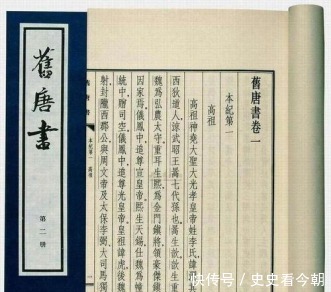 舊唐書
第二册
舊唐書卷一
本紀第一
高祖
高祖神堯大聖大光孝皇帝姓李氏諱
西狄道人,涼武昭王暠七代孫也。暠生歆,歆生重
魏爲弘農太守。重耳生熙,爲金門鎮將,領豪傑
因家焉。儀鳳中,追尊宣皇帝。熙生天錫,仕魏爲
統中,贈司空。儀鳳中,追尊光皇帝。皇祖諱虎,後魏
射,封隴西郡公,與周文帝及太保李弼、大司馬獨
本紀第一 高祖
快传号 / 史史看今朝